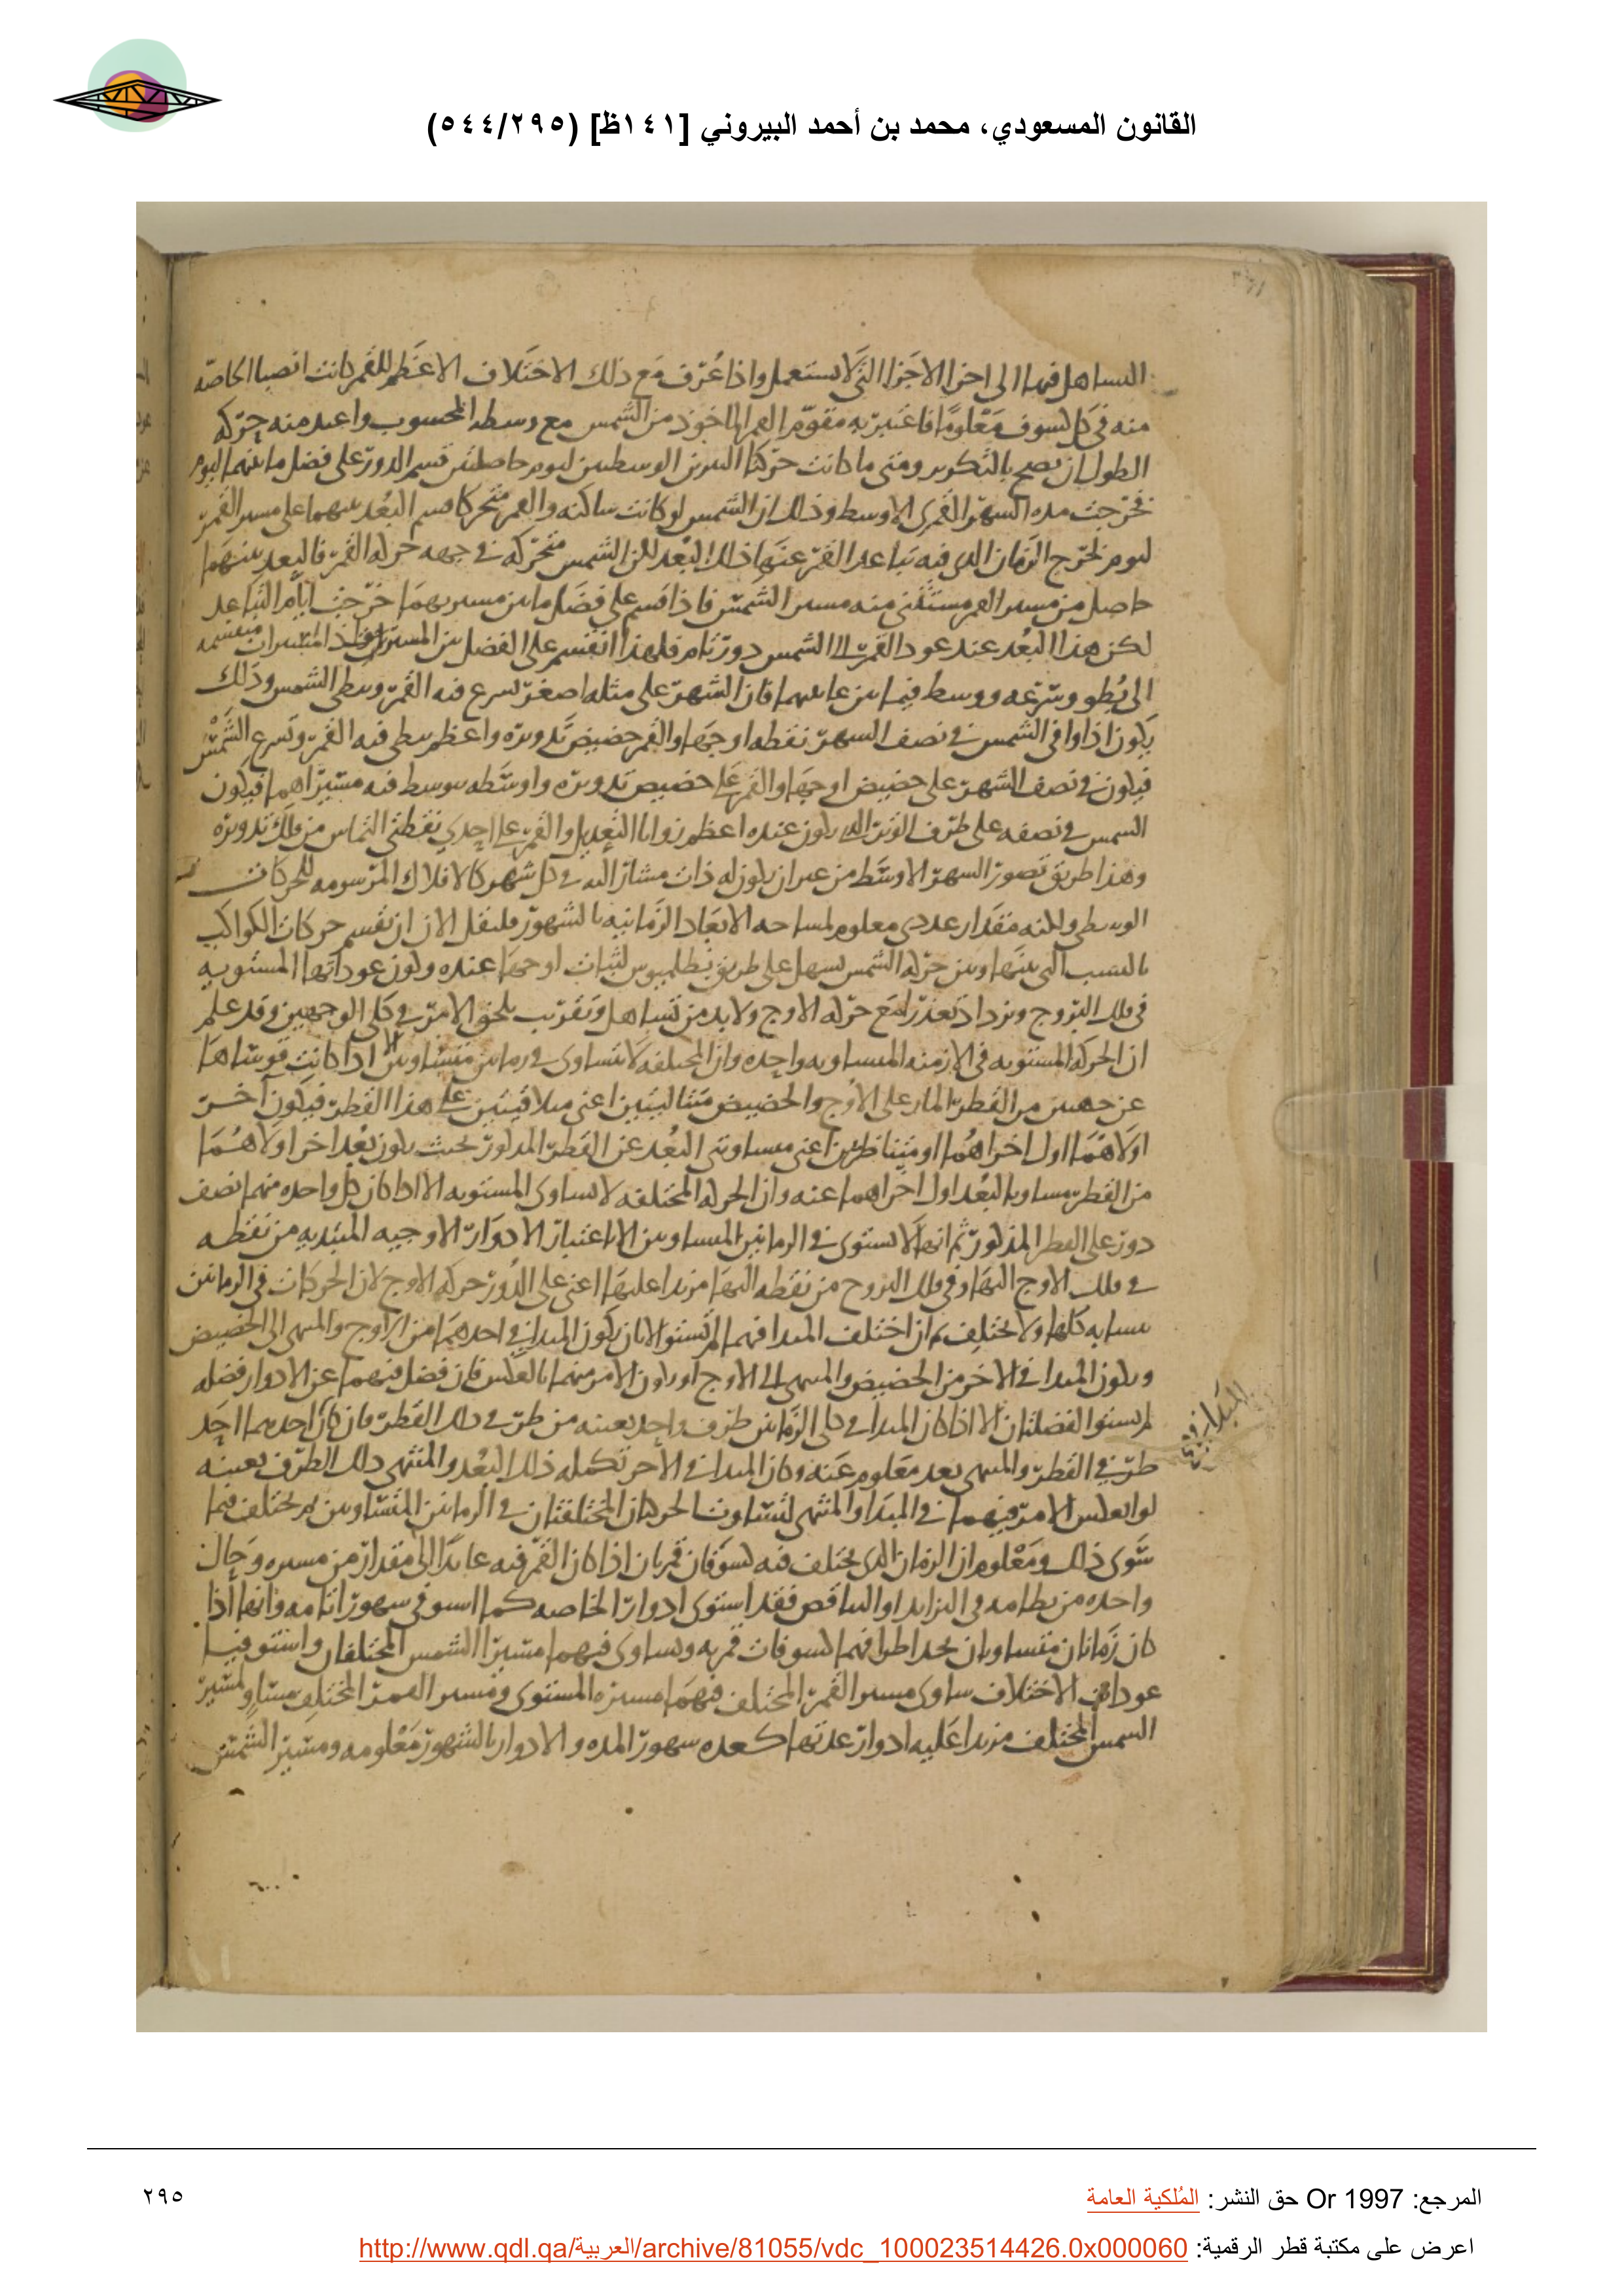 القانون المسعودي، محمد بن أحمد البيروني [١٤١ظ] (٥٤٤/٢٩٥)
التساهل فيها الى اخر الاجزا التى لا تستعمل واذا عرف مع ذلك الاختلاف الاعظم للقمر كانت الخاصه
منه فى كل كسوف معلومًا فاعتبر به مقوّم القمر الماخوذ من الشمس مع وسطه المحسوب واعيد منه حركه
الطول ان يصح بالتكرير ومتى ما كانت حركتا النيرين الوسطيين ليوم حاصلتين قسم الدور على فضل ما بينهما اليوم
فخرجت مده الشهر القمرى الاوسط وذلك ان الشمس لو كانت ساكنه والقمر متحركا قسم البُعد بينهما على مسير القمر
ليوم لخرج الزمان الذى فيه تباعد القمر عنها ذلك البُعد لكن الشمس متحركه فى جهه حركه القمر فالبعد بينهما
حاصل من مسير القمر مستثنى منه مسير الشمس فاذا قسم على فضل ما بين مسيريهما خرجت ايام التباعد
لكن هذا البُعد عند عود القمر الى الشمس دور تام فلهذا انقسم على الفضل بين المسيرين
الى بُطو وسرعه ووسط فيما بين غايتيهما فان الشهر على مثله اصغر تسرع فيه القمر وتبطى الشمس وذلك
يكون اذا وافى الشمس فى نصف الشهر نقطه اوجها والقمر حضيض تدويره واعظم يبطى فيه القمر وتسرع الشمس
فيكون فى نصف الشهر على حضيض اوجها والقمر على حضيض تدويره واوسطه يتوسط فيه مسيراهما فيكون
الشمس فى نصفه على طرف الوتر الذى يكون عنده اعظم زوايا التعديل والقمر على احدى نقطتى التماس من فلك تدويره
وهذا طريق تصور الشهر الاوسط من غير ان يكون له ذات مشار اليه فى كل شهر كالافلاك المرسومه للحركات
الوسطى ولكنه مقدار عددى معلوم لمساحه الابعاد الزمانيه بالشهور فلنقل الان ان تقسم حركات الكواكب
بالنسب التى بينها وبين حركه الشمس يسهل على طريق بطلميوس لثبات اوجها عنده وكون عوداتها المستويه
فى فلك البروج ويزداد تعذرًا مع حركه الاوج ولا بد من تساهل وتقريب يلحق الامر فى كلى الوجهين وقد علم
ان الحركه المستويه فى الازمنه المتساويه واحده وان المختلفه لا تتساوى فى زمانين متساويين الا اذا كانت قوساها
عن جهتين من القطر المار على الاوج والحضيض متتاليتين اعنى متلاقيتين على هذا القطر فيكون اخر
اولاهما اول اخراهما او متناظرتين اعنى متساويتى البُعد عن القطر المذكور بحيث يكون بُعد اخر اولاهما
من القطر مساويا لبُعد اول اخراهما عنه وان الحركه المختلفه لا تساوى المستويه الا اذا كان كل واحده منهما نصف
دور على القطر المذكور ثم انها لا تستوى فى الزمانين المتساويين الا باعتبار الادوار الاوجيه المبتديه من نقطه
فى فلك الاوج اليها وفى فلك البروج من نقطه اليها مزيدا عليها اعنى على الدور حركه الاوج لان الحركات فى الزمانين
متشابه كلها ولا يختلف ثم ان اختلف المبدا فيهما لم تستو الا بان يكون المبدا فى احدهما من الاوج والمنتهى الى الحضيض
ويكون المبدا فى الاخر من الحضيض والمنتهى الى الاوج او يكون الامر منهما بالعكس فان فضل فيهما عن الادوار فضله
لم تستو الفضلتان الا اذا كان المبدا فى كلى الزمانين طرف واحد بعينه من طرفى ذلك القطر فان كان احدهما احد
طرفى القطر والمنتهى بعد معلوم عنه وكان المبدا فى الاخر تكمله ذلك البُعد والمنتهى ذلك الطرف بعينه
لو انعكس الامر فيهما فى المبدا والمنتهى لتساوت الحركتان المختلفتان فى الزمانين المتساويين لم يختلف فيما
سوى ذلك ومعلوم ان الزمان الذى يختلف فيه كسوفان قمريان اذا كان القمر فيه عايدًا الى مقدار من مسيره وحال
واحده من نظامه فى التزايد او التناقص فقد استوى ادوار الخاصه كما استوفى شهور ايامه وانها اذا
كان زمانان متساويان يحد اطرافهما كسوفات قمريه وتساوى فيهما مسيرا الشمس المختلفان واستوفيا
عودات الاختلاف ساوى مسير القمر المختلف فيهما مسيره المستوى ومسير القمر المختلف مساو لمسير
الشمس المختلف مزيدا عليه ادوار عدتها كعده شهور المده والادوار بالشهور معلومه ومسير الشمس
المبدا فى
المرجع: Or 1997 حق النشر: المُلكية العامة
٢٩٥
اعرض على مكتبة قطر الرقمية: http://www.qdl.qa/العربية/archive/81055/vdc_100023514426.0x000060